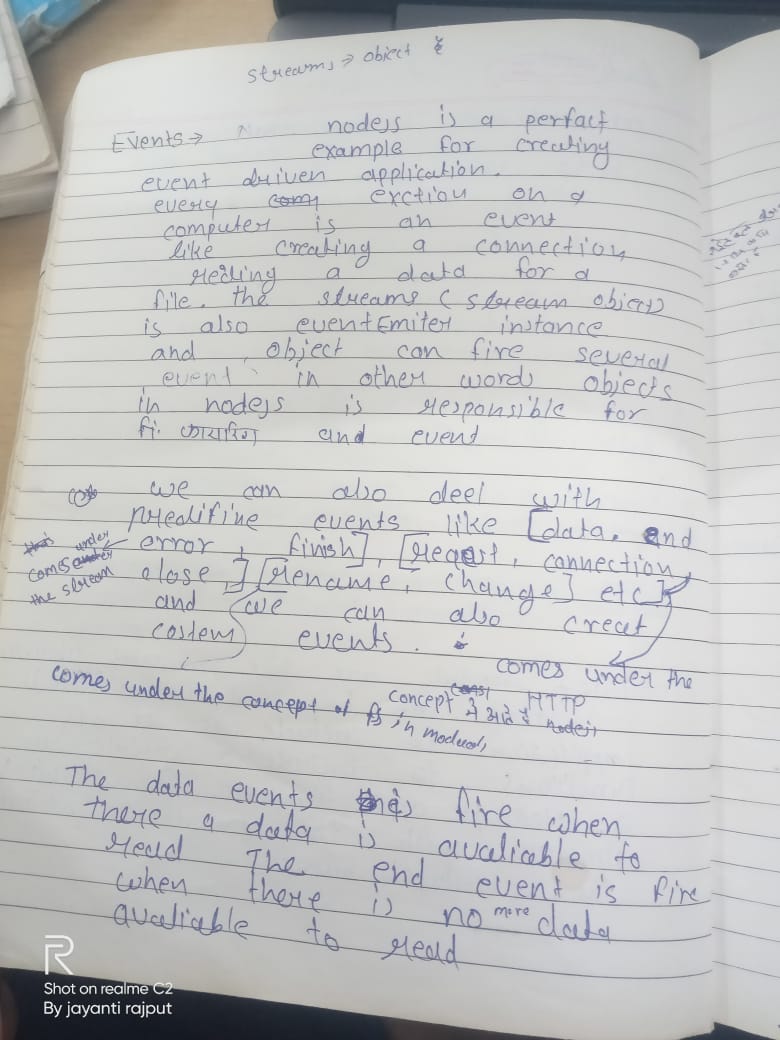 streams → object &
Events → nodejs is a perfact
example for creating
event driven application.
every exction on a
computer is an event
like creating a connection,
reeding a data for a
file. the streams (stream object)
is also eventEmiter instance
and object can fire several
event in other words objects
in nodejs is responsible for
fi. फायरिंग and event
we can also deel with
predifine events like [data. end
error, finish], [reqest, connection,
close,] [rename, change] etc]
and we can also creat
costem events.
comes under
the stream
comes under the
concept HTTP
में आते है nodejs
comes under the concept of fs in moduel,
The data events is fire when
there a data is avaliable to
read The end event is fire
when there is no more data
avaliable to read
Shot on realme C2
By jayanti rajput